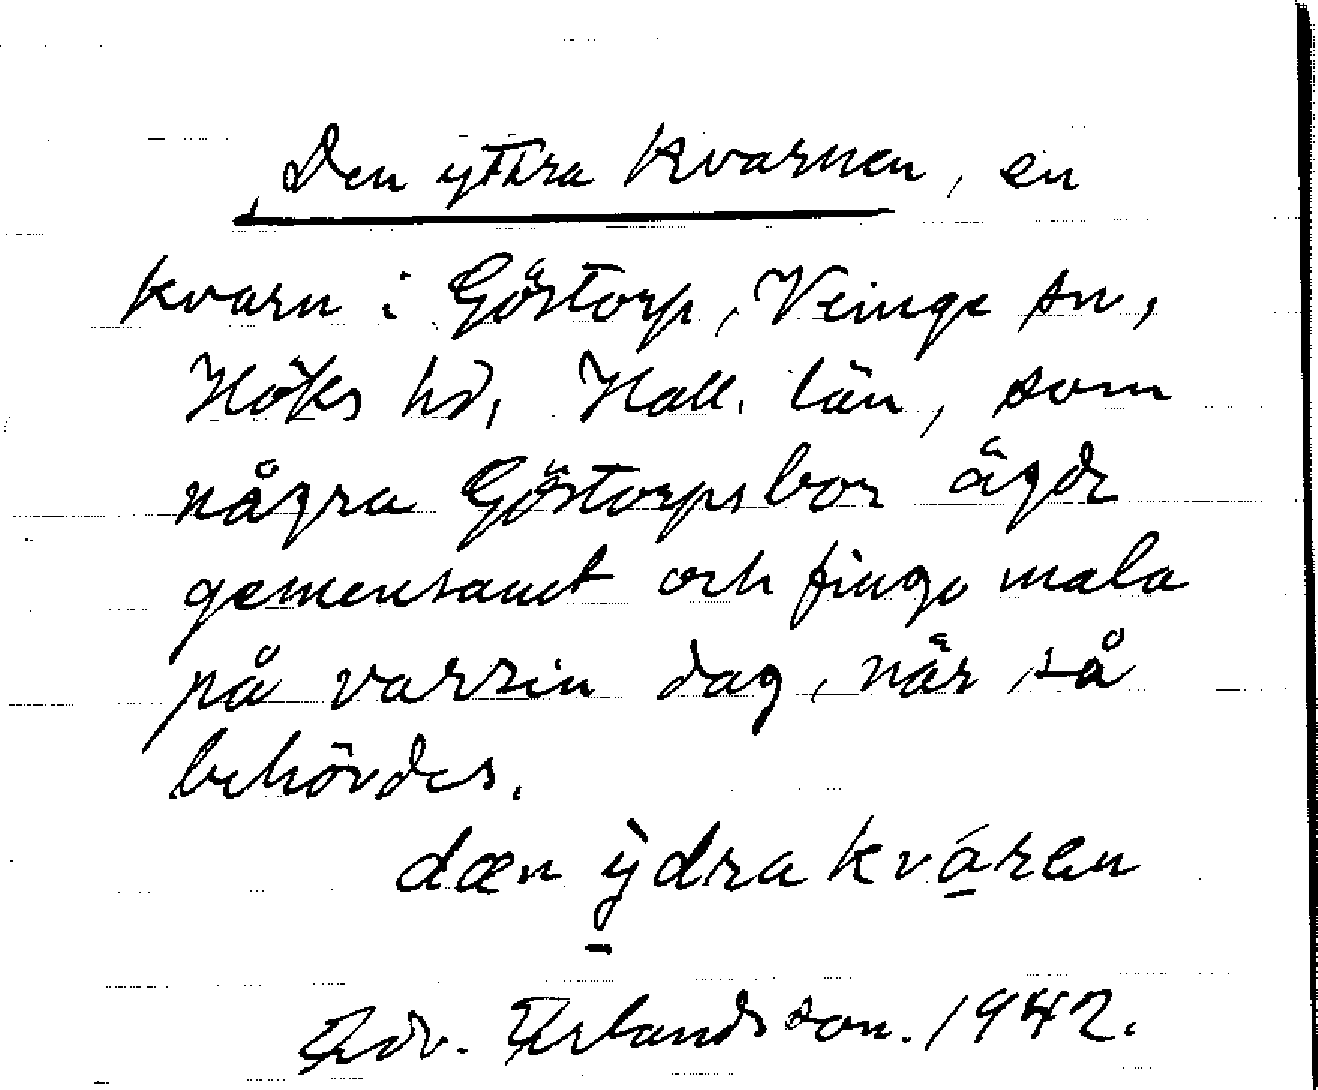 Den yttra kvarnen, en
kvarn i Göstorp, Veinge sn,
Höks hd, Hall. län, som
några Göstorpsbor ägde
gemensamt och fingo mala
på varsin dag, när så
behövdes.
dæn ỳdra kváren
Edv. Erlandsson. 1942.